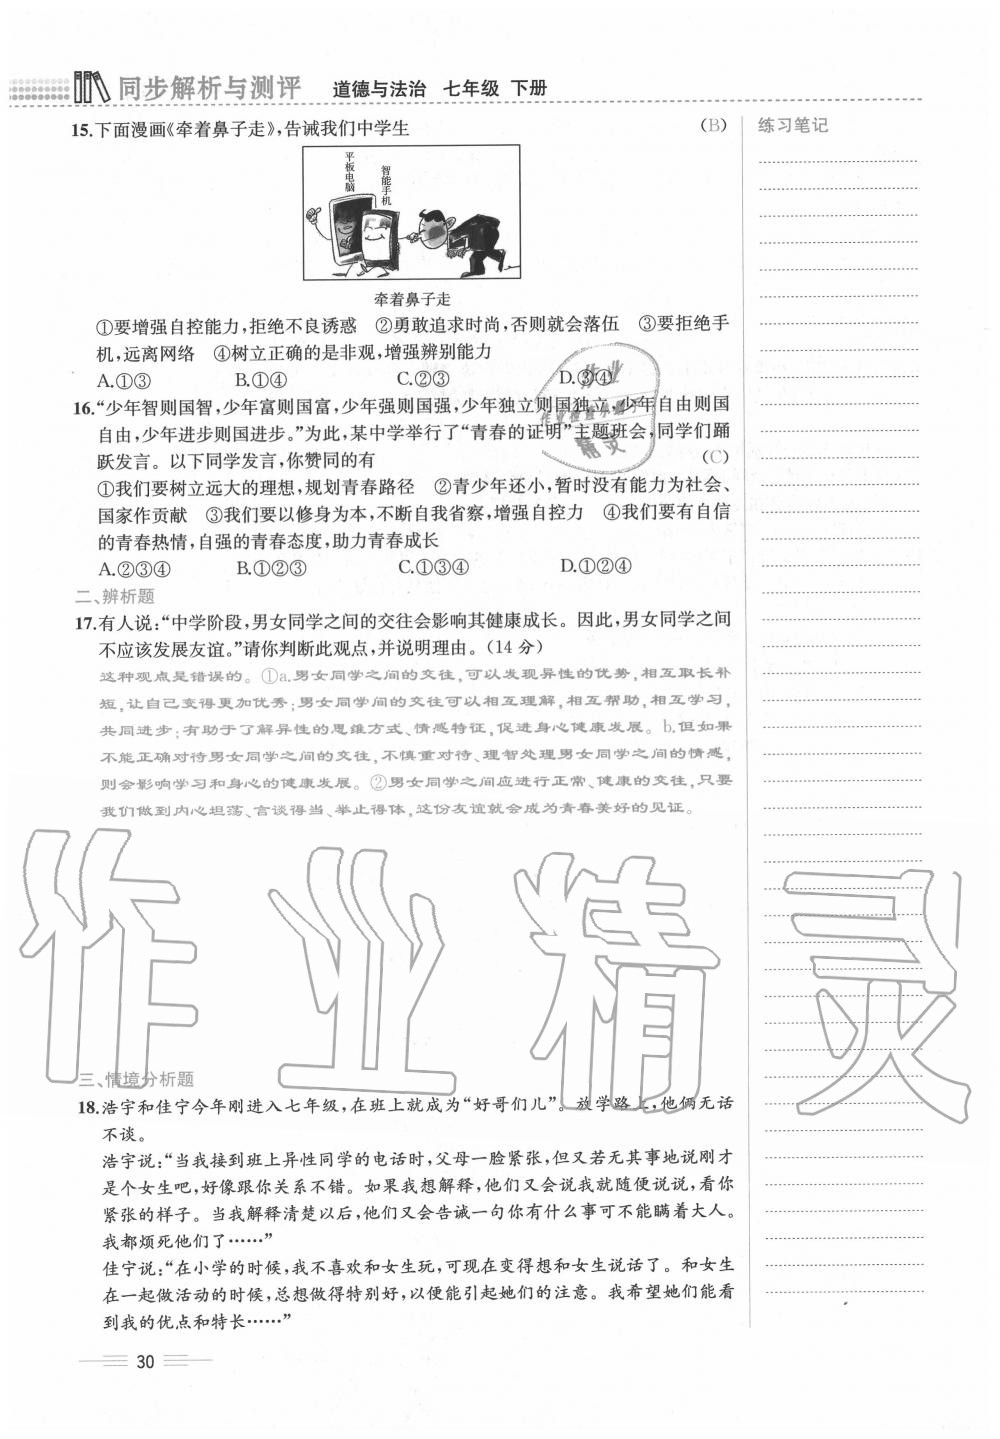 同步解析与测评 道德与法治 七年级 下册
15.下面漫画《牵着鼻子走》,告诫我们中学生 (B)
平板电脑
智能手机
牵着鼻子走
①要增强自控能力,拒绝不良诱惑 ②勇敢追求时尚,否则就会落伍 ③要拒绝手
机,远离网络 ④树立正确的是非观,增强辨别能力
A.①③ B.①④ C.②③ D.③④
16.“少年智则国智,少年富则国富,少年强则国强,少年独立则国独立,少年自由则国
自由,少年进步则国进步。”为此,某中学举行了“青春的证明”主题班会,同学们踊
跃发言。以下同学发言,你赞同的有 (C)
①我们要树立远大的理想,规划青春路径 ②青少年还小,暂时没有能力为社会、
国家作贡献 ③我们要以修身为本,不断自我省察,增强自控力 ④我们要有自信
的青春热情,自强的青春态度,助力青春成长
A.②③④ B.①②③ C.①③④ D.①②④
二、辨析题
17.有人说:“中学阶段,男女同学之间的交往会影响其健康成长。因此,男女同学之间
不应该发展友谊。”请你判断此观点,并说明理由。(14 分)
这种观点是错误的。①a.男女同学之间的交往,可以发现异性的优势,相互取长补
短,让自己变得更加优秀;男女同学间的交往可以相互理解,相互帮助,相互学习,
共同进步;有助于了解异性的思维方式、情感特征,促进身心健康发展。b.但如果
不能正确对待男女同学之间的交往,不慎重对待、理智处理男女同学之间的情感,
则会影响学习和身心的健康发展。②男女同学之间应进行正常、健康的交往,只要
我们做到内心坦荡、言谈得当、举止得体,这份友谊就会成为青春美好的见证。
作业精灵
三、情境分析题
18.浩宇和佳宁今年刚进入七年级,在班上就成为“好哥们儿”。放学路上,他俩无话
不谈。
浩宇说:“当我接到班上异性同学的电话时,父母一脸紧张,但又若无其事地说刚才
是个女生吧,好像跟你关系不错。如果我想解释,他们又会说我就随便说说,看你
紧张的样子。当我解释清楚以后,他们又会告诫一句你有什么事可不能瞒着大人。
我都烦死他们了……”
佳宁说:“在小学的时候,我不喜欢和女生玩,可现在变得想和女生说话了。和女生
在一起做活动的时候,总想做得特别好,以便能引起她们的注意。我希望她们能看
到我的优点和特长……”
30
练习笔记